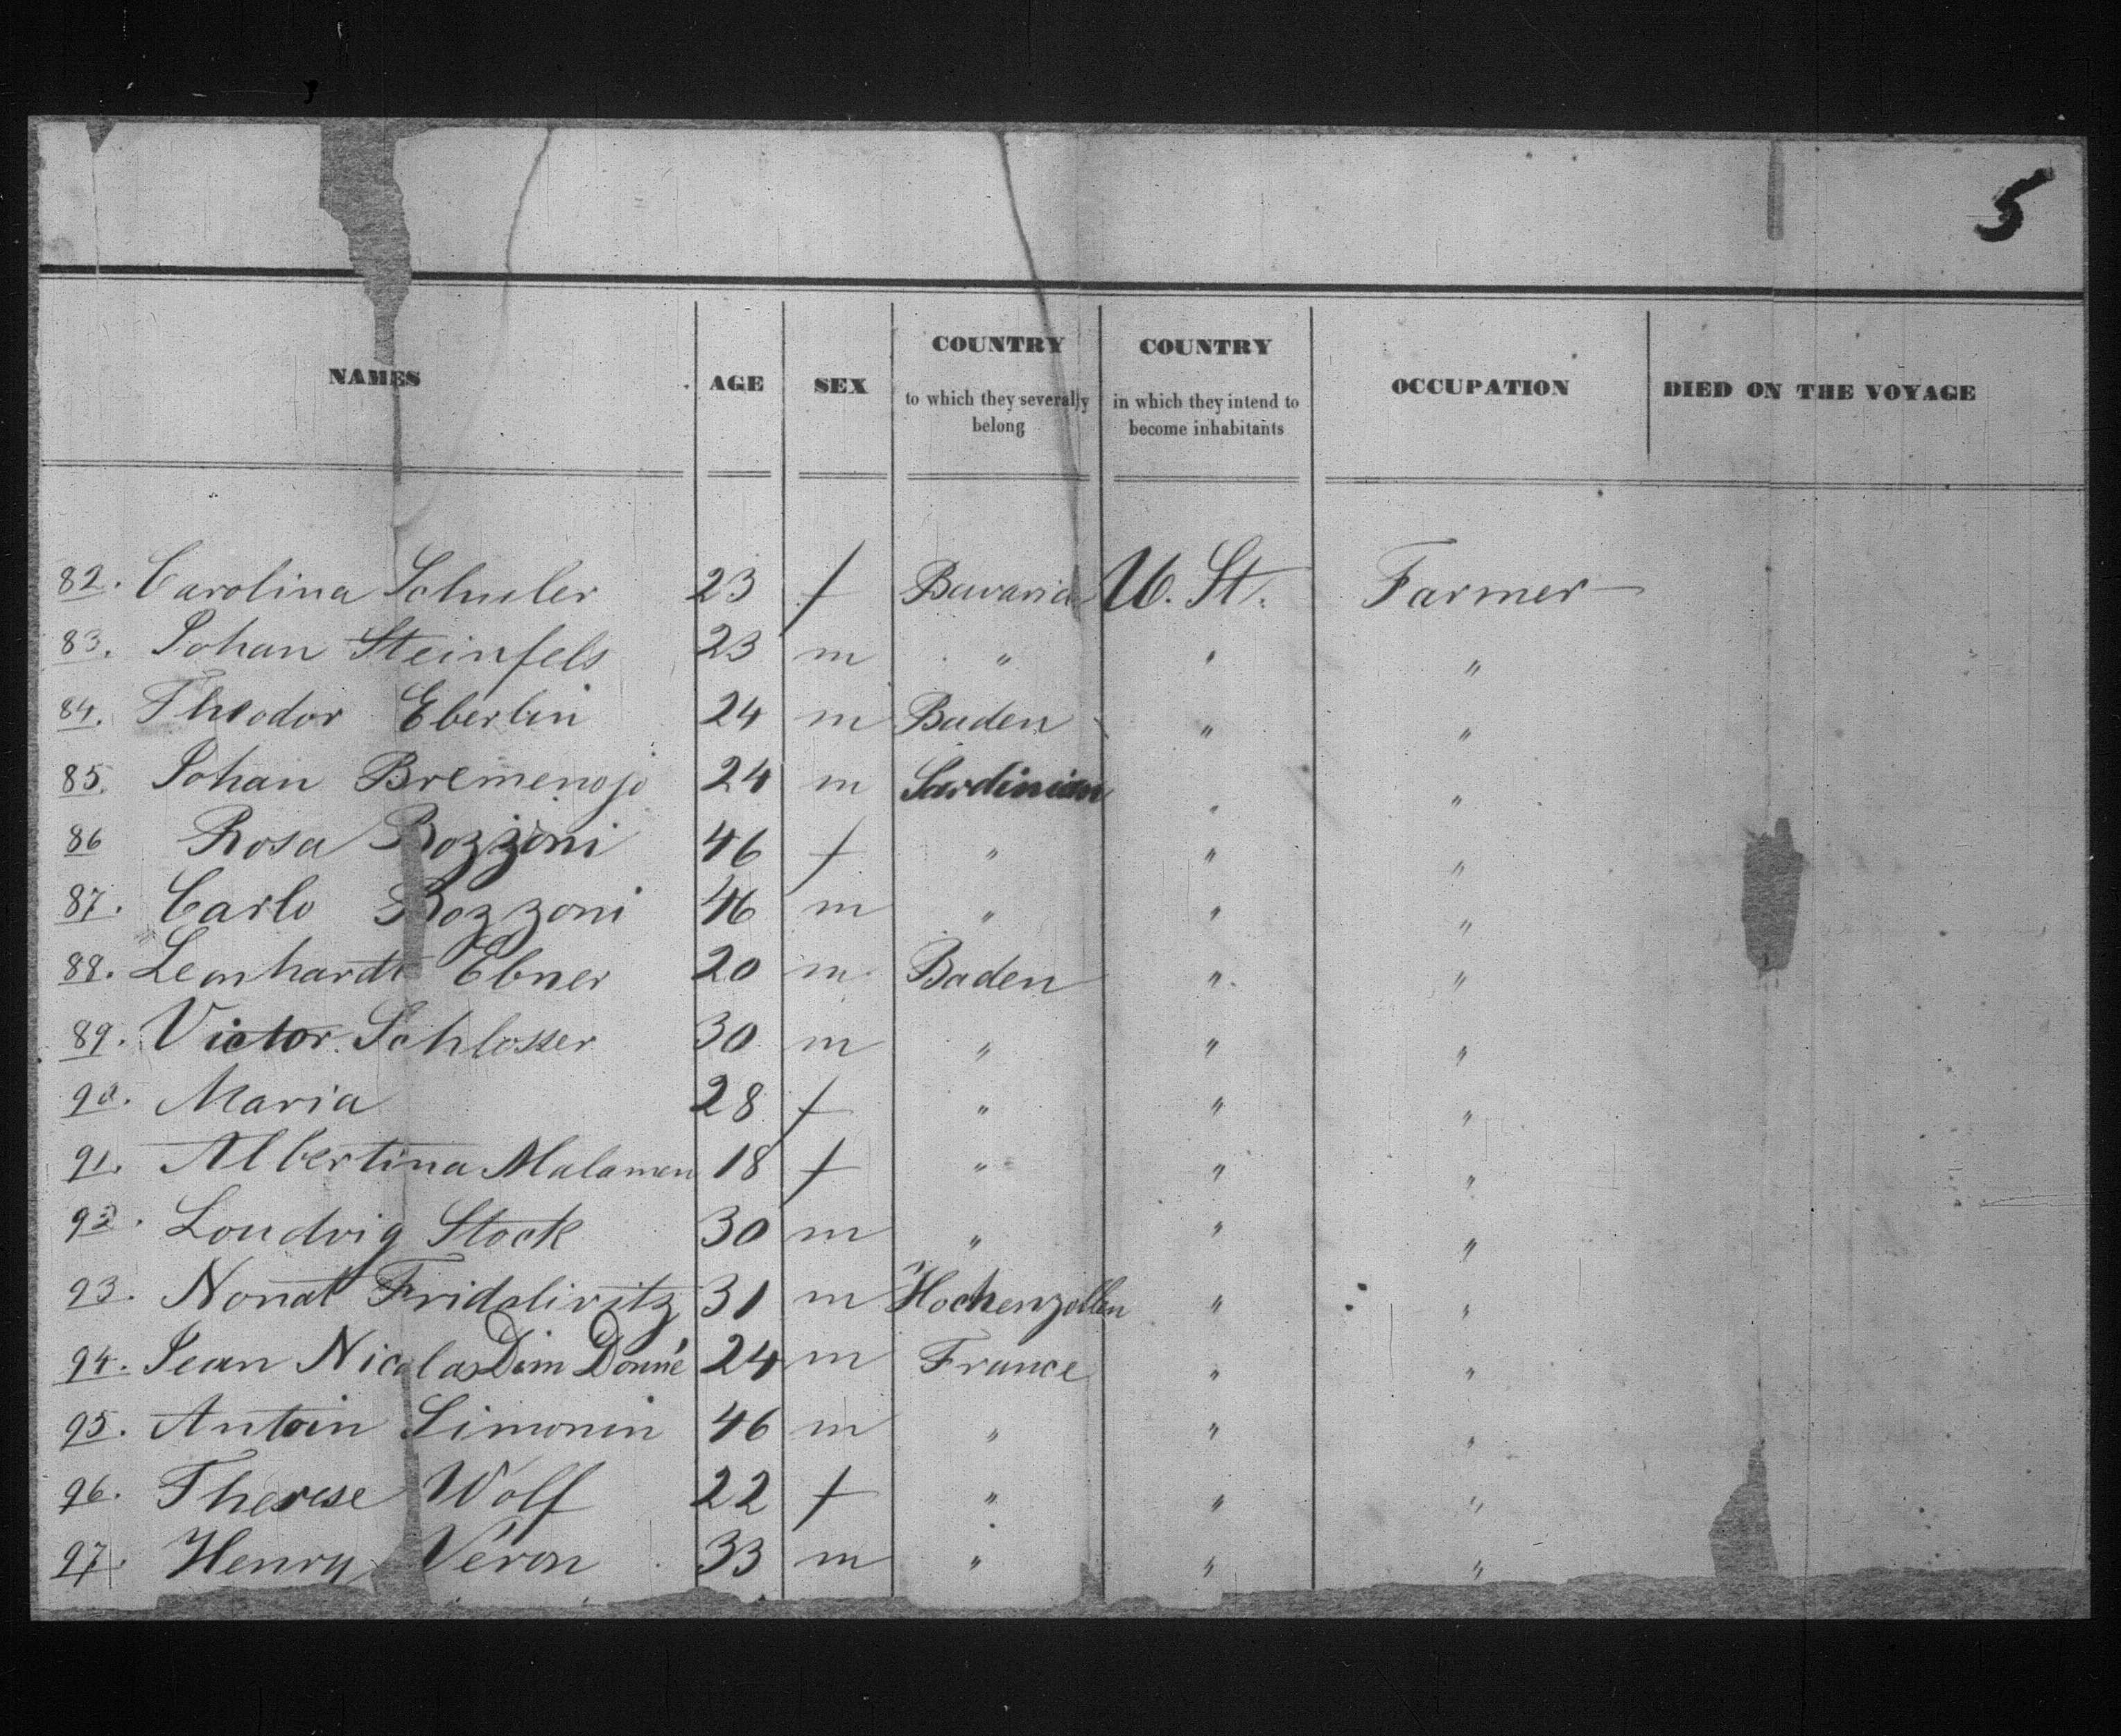 5
NAMES AGE SEX COUNTRY to which they severally belong COUNTRY in which they intend to become inhabitants OCCUPATION DIED ON THE VOYAGE
82. Carolina Schuler 23 f Bavaria U. St. Farmer
83. Johan Steinfels 23 m " " "
84. Theodor Eberlin 24 m Baden " "
85. Johan Bremenojo 24 m Sardinian " "
86 Rosa Bozzoni 46 f " " "
87. Carlo Bozzoni 46 m " " "
88. Leonhardt Ebner 20 m Baden " "
89. Victor Schlosser 30 m " " "
90. Maria 28 f " " "
91. Albertina Malamen 18 f " " "
92. Loudvig Stock 30 m " " "
93. Nonat 31 m Hochenzollen " "
94. Jean Nicolas Dim Donné 24 m France " "
95. Antoin Simonin 46 m " " "
96. Therese Wolf 22 f " " "
97. Henry Véron 33 m " " "